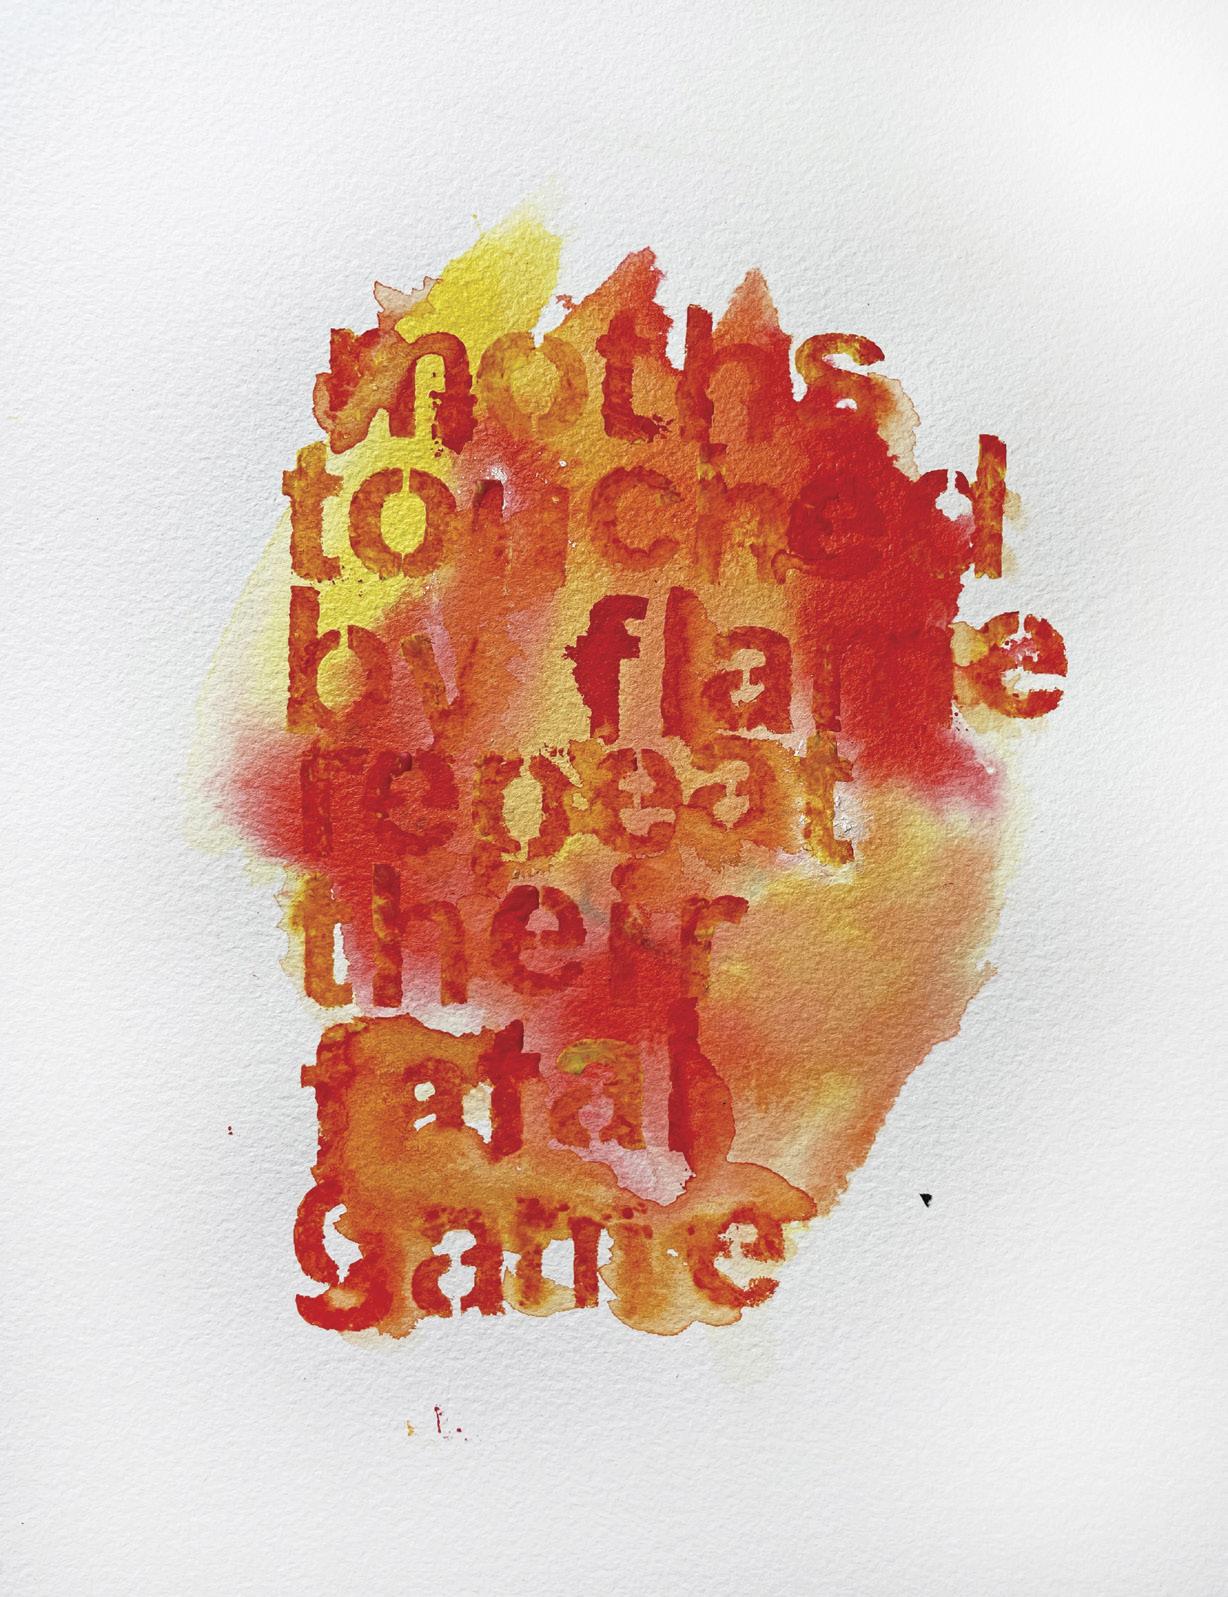 moths
touched
by flame
repeat
their
fatal
game